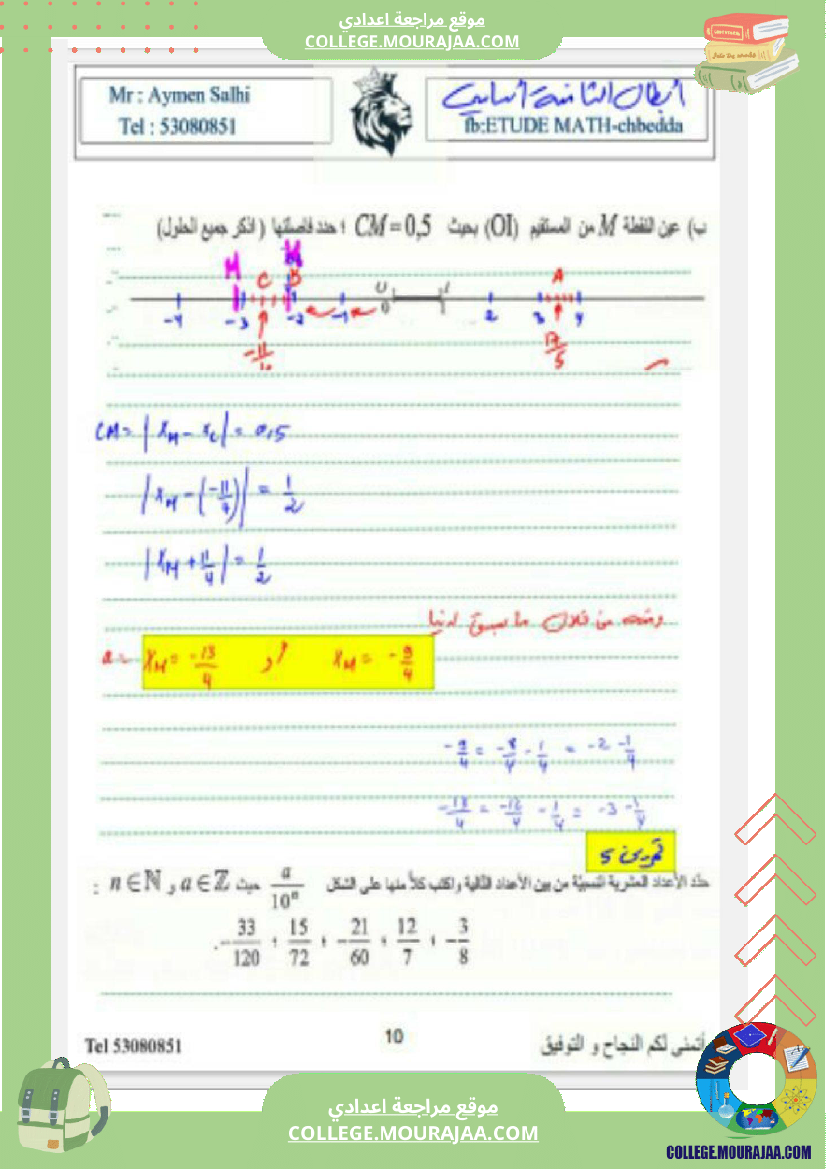 موقع مراجعة اعدادي
COLLEGE.MOURAJAA.COM
Mr : Aymen Salhi
Tel : 53080851
أبطال الثامنة أساسي
fb:ETUDE MATH-chbedda
ب) عين النقطة M من المستقيم (OI) بحيث CM = 0,5 ؛ حدد فاصلتها ( اذكر جميع الحلول)
M C M B O I A
-4 -3 -2 -1 0 1 2 3 4
-11/ 17/5
CM = |x_M - x_C| = 0,5
|x_M - (-11/4)| = 1/2
|x_M + 11/4| = 1/2
ومنه من خلال ما سبق لدينا
x_M = -13/4 أو x_M = -9/4
-9/4 = -8/4 - 1/4 = -2 - 1/4
-13/4 = -12/4 - 1/4 = -3 - 1/4
تمرين 5
حدّد الأعداد العشرية النسبيّة من بين الأعداد التّالية واكتب كلاّ منها على الشكل a/10ⁿ حيث a∈ℤ و n∈ℕ :
-33/120 ؛ 15/72 ؛ -21/60 ؛ 12/7 ؛ -3/8
Tel 53080851
10
أتمنى لكم النجاح و التوفيق
موقع مراجعة اعدادي
COLLEGE.MOURAJAA.COM
COLLEGE.MOURAJAA.COM